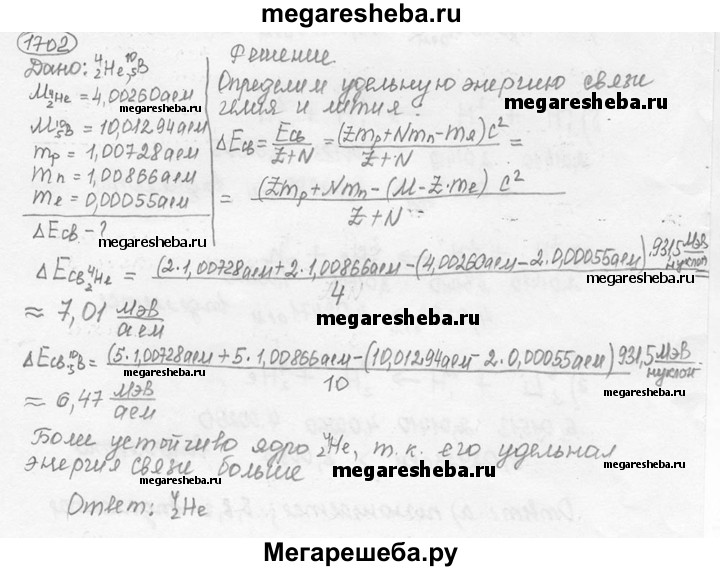 megaresheba.ru
1702
Дано: ⁴₂He, ¹⁰₅B
M⁴₂He = 4,00260аем
M¹⁰₅B = 10,01294аем
mp = 1,00728аем
mn = 1,00866аем
me = 0,00055аем
ΔEсв - ?
megaresheba.ru
Решение
Определим удельную энергию связи
гелия и лития.
megaresheba.ru
ΔEсв = Eсв/(Z+N) = (Zmp+Nmn-me)c²/(Z+N) =
= (Zmp+Nmn-(M-Z·me) c²/(Z+N)
ΔEсв⁴₂He = (2·1,00728аем+2·1,00866аем-(4,00260аем-2·0,00055аем)/4 · 931,5 МэВ/нуклон
megaresheba.ru
≈ 7,01 МэВ/аем
megaresheba.ru
ΔEсв¹⁰₅B = (5·1,00728аем+5·1,00866аем-(10,01294аем-2·0,00055аем)/10 931,5 МэВ/нуклон
≈ 6,47 МэВ/аем
Более устойчиво ядро ⁴₂He, т.к. его удельная
энергия связи больше
megaresheba.ru
Ответ: ⁴₂He
megaresheba.ru
Мегарешеба.ру